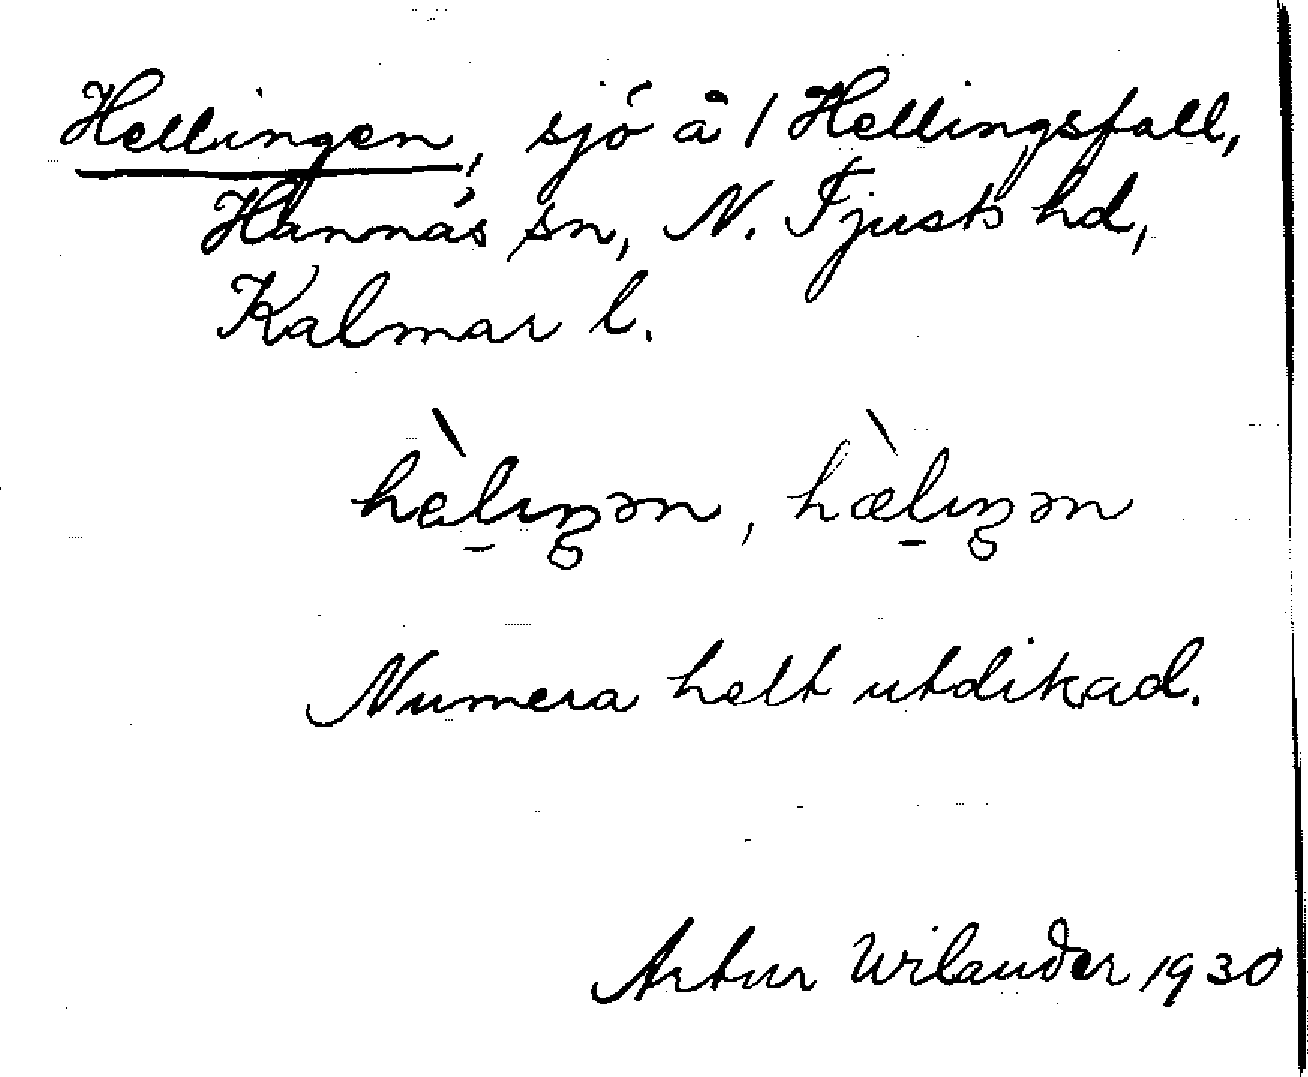 Hellingen, sjö å 1 Hellingsfall,
Hannäs sn, N. Tjusts hd,
Kalmar l.
hèlıŋən, hæ̀lıŋən
Numera helt utdikad.
Artur Wilander 1930